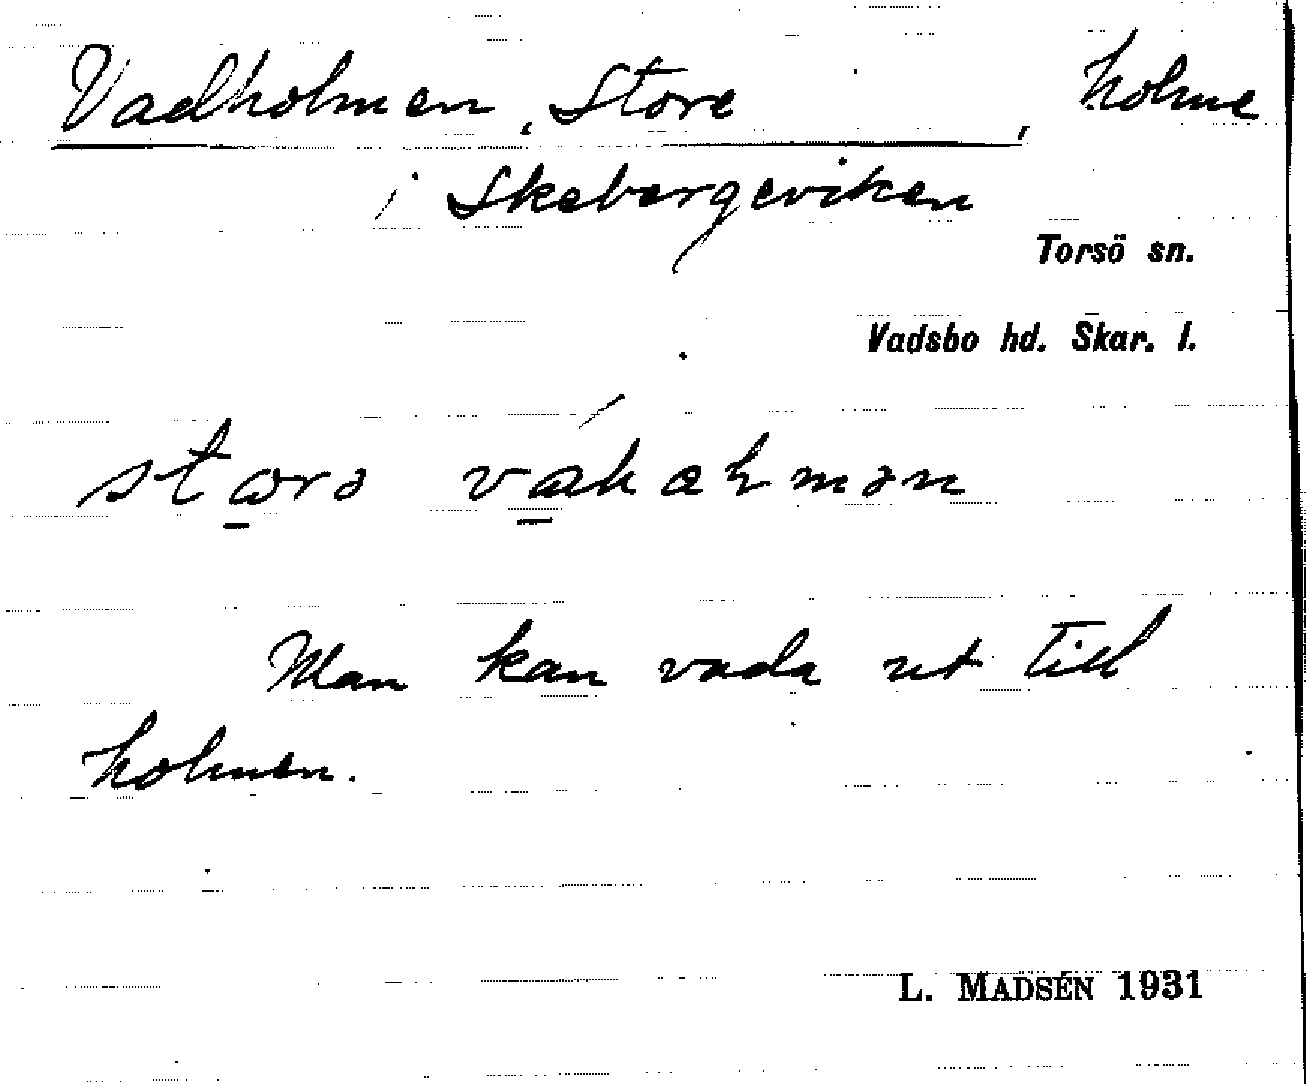 Vadholmen, Store, holme
i Skebergeviken
Torsö sn.
Vadsbo hd. Skar. l.
Man kan vada ut till
holmen.
L. MADSÉN 1931